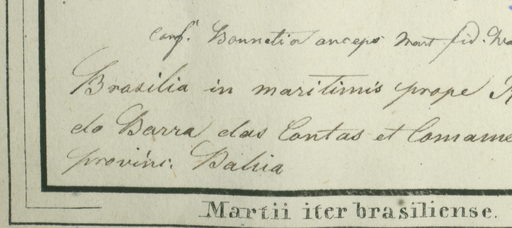 conf. Bonnetia anceps Mart. fid.
Brasilia in maritimis prope
do Barra das Contas et Comam
provinc. Bahia
Martii iter brasiliense.